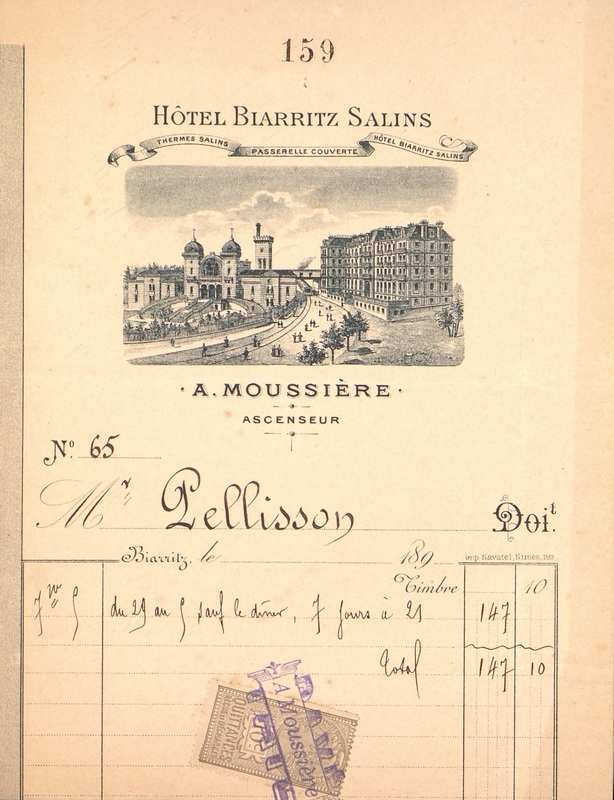 159
HÔTEL BIARRITZ SALINS
THERMES SALINS
PASSERELLE COUVERTE
HÔTEL BIARRITZ SALINS
· A. MOUSSIÈRE ·
ASCENSEUR
Nº 65
Mr Pellisson Doit.
Biarritz, le 189
Imp. Navatel, Nimes,
Timbre 10
5 du 29 au 5 sauf le dîner, 7 jours à 21 147
Total 147 10
QUITTANCES
A Moussière